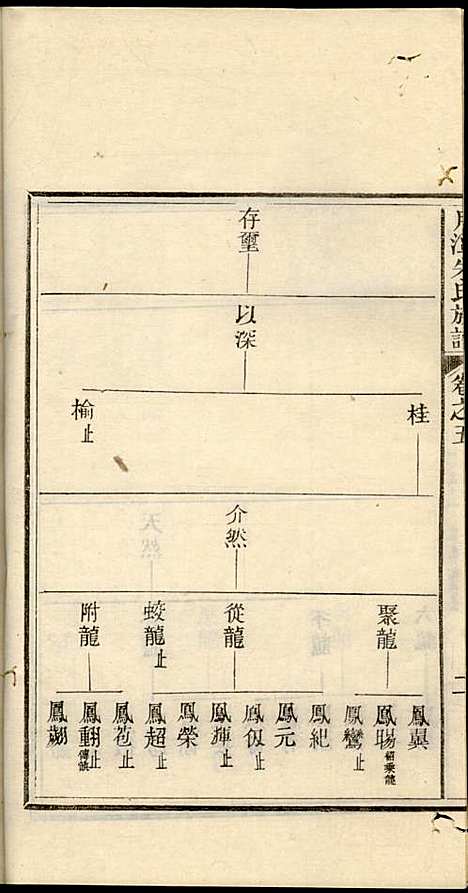 朱氏族譜
卷之五
二
存璽
以深
桂
榆止
介然
聚龍
從龍
蛟龍止
附龍
鳳翼
鳳暘紹乘龍
鳳鸞止
鳳紀
鳳元
鳳侃止
鳳輝止
鳳榮
鳳超止
鳳苞止
鳳翻止
鳳翽